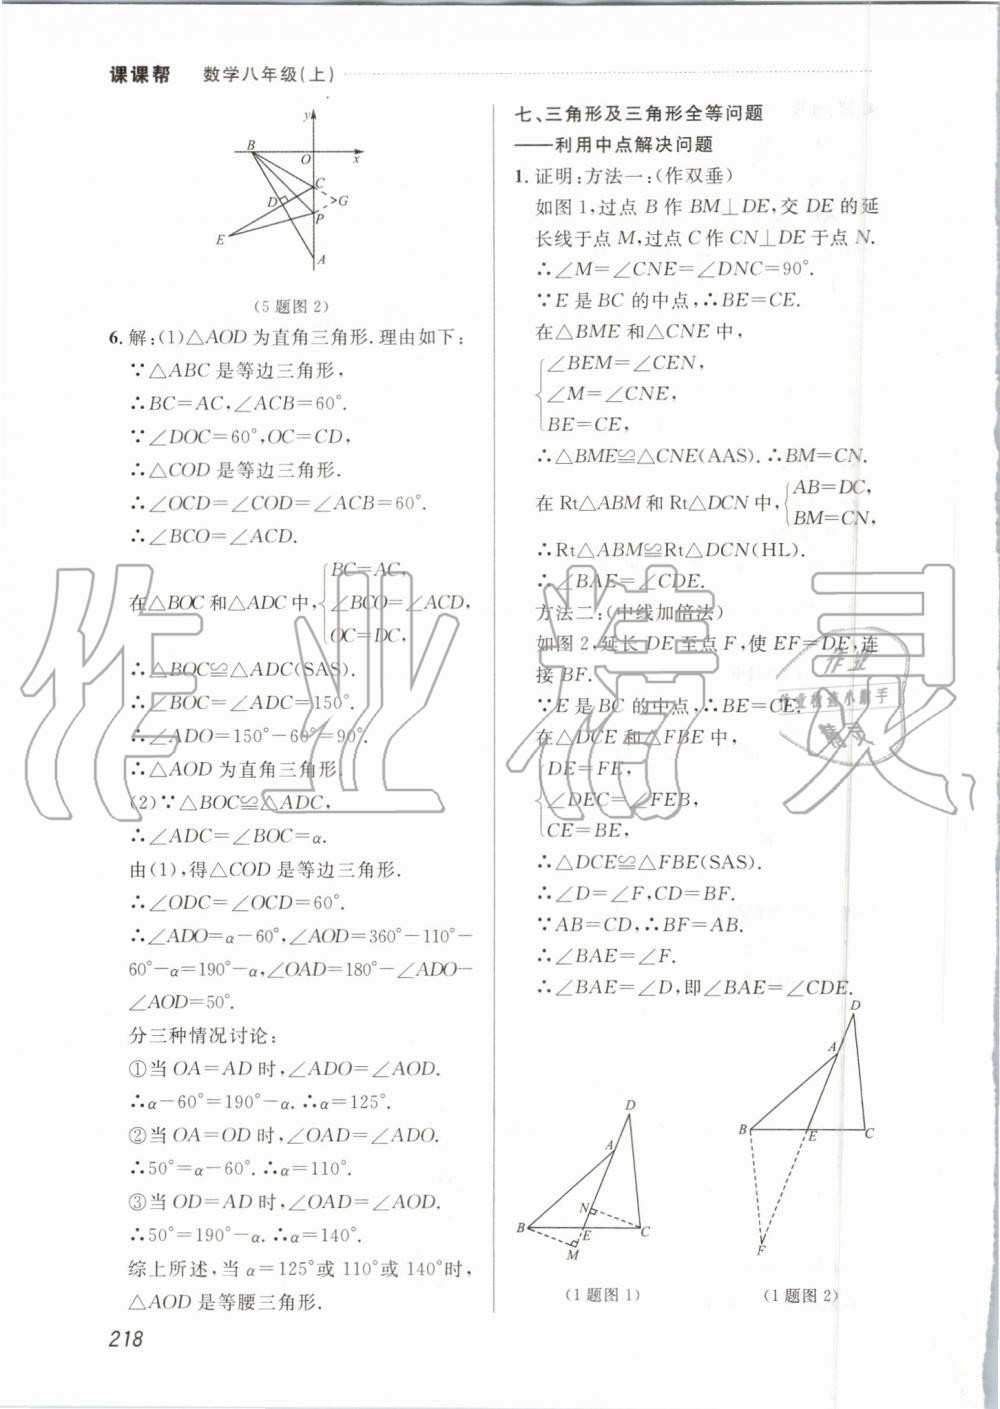 课课帮 数学八年级(上)
y
B
O
x
C
D
G
P
E
A
(5题图2)
6.解:(1)△AOD为直角三角形.理由如下:
∵△ABC是等边三角形,
∴BC=AC,∠ACB=60°.
∵∠DOC=60°,OC=CD,
∴△COD是等边三角形.
∴∠OCD=∠COD=∠ACB=60°.
∴∠BCO=∠ACD.
BC=AC,
在△BOC和△ADC中,{∠BCO=∠ACD,
OC=DC,
∴△BOC≌△ADC(SAS).
∴∠BOC=∠ADC=150°.
∴∠ADO=150°-60°=90°.
∴△AOD为直角三角形.
(2)∵△BOC≌△ADC,
∴∠ADC=∠BOC=α.
由(1),得△COD是等边三角形.
∴∠ODC=∠OCD=60°.
∴∠ADO=α-60°,∠AOD=360°-110°-
60°-α=190°-α,∠OAD=180°-∠ADO-
∠AOD=50°.
分三种情况讨论:
①当OA=AD时,∠ADO=∠AOD.
∴α-60°=190°-α.∴α=125°.
②当OA=OD时,∠OAD=∠ADO.
∴50°=α-60°.∴α=110°.
③当OD=AD时,∠OAD=∠AOD.
∴50°=190°-α.∴α=140°.
综上所述,当α=125°或110°或140°时,
△AOD是等腰三角形.
218
七、三角形及三角形全等问题
——利用中点解决问题
1.证明:方法一:(作双垂)
如图1,过点B作BM⊥DE,交DE的延
长线于点M,过点C作CN⊥DE于点N.
∴∠M=∠CNE=∠DNC=90°.
∵E是BC的中点,∴BE=CE.
在△BME和△CNE中,
∠BEM=∠CEN,
∠M=∠CNE,
BE=CE,
∴△BME≌△CNE(AAS).∴BM=CN.
在Rt△ABM和Rt△DCN中,{AB=DC,
BM=CN,
∴Rt△ABM≌Rt△DCN(HL).
∴∠BAE=∠CDE.
方法二:(中线加倍法)
如图2,延长DE至点F,使EF=DE,连
接BF.
∵E是BC的中点,∴BE=CE.
在△DCE和△FBE中,
DE=FE,
∠DEC=∠FEB,
CE=BE,
∴△DCE≌△FBE(SAS).
∴∠D=∠F,CD=BF.
∵AB=CD,∴BF=AB.
∴∠BAE=∠F.
∴∠BAE=∠D,即∠BAE=∠CDE.
D
A
N
B
E
C
M
(1题图1)
D
A
B
E
C
F
(1题图2)
作业精灵
作业
作业快速小助手
精灵